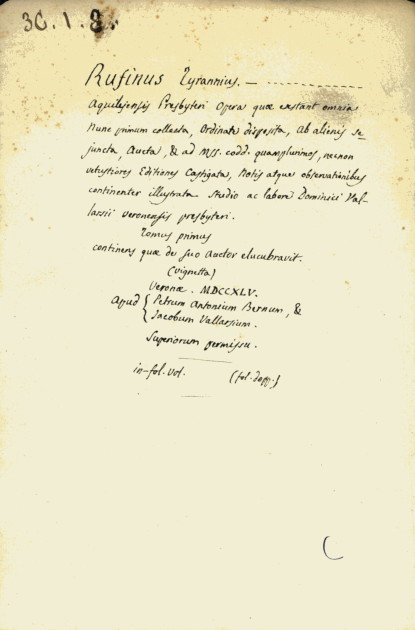 30.1.8.
Rufinus Tyrannius. —
Aquilejensis Presbyteri Opera quæ extant omnia
Nunc primum collecta, Ordinate disposita, ab alienis se
juncta, Aucta, & ad Mss. codd. quamplurimos, necnon
vetustiores Editiones Castigata, Notis atque observationibus
continenter illustrata Studio ac labore Dominici Val-
larsii veronensis presbyteri.
Tomus primus
continens quæ de suo Auctor elucubravit.
(vignetta)
Veronæ. MDCCXLV.
Apud { Petrum Antonium Bernum, &
Jacobum Vallarsium.
Superiorum permissu.
in-fol. vol. (fol. dopp.)